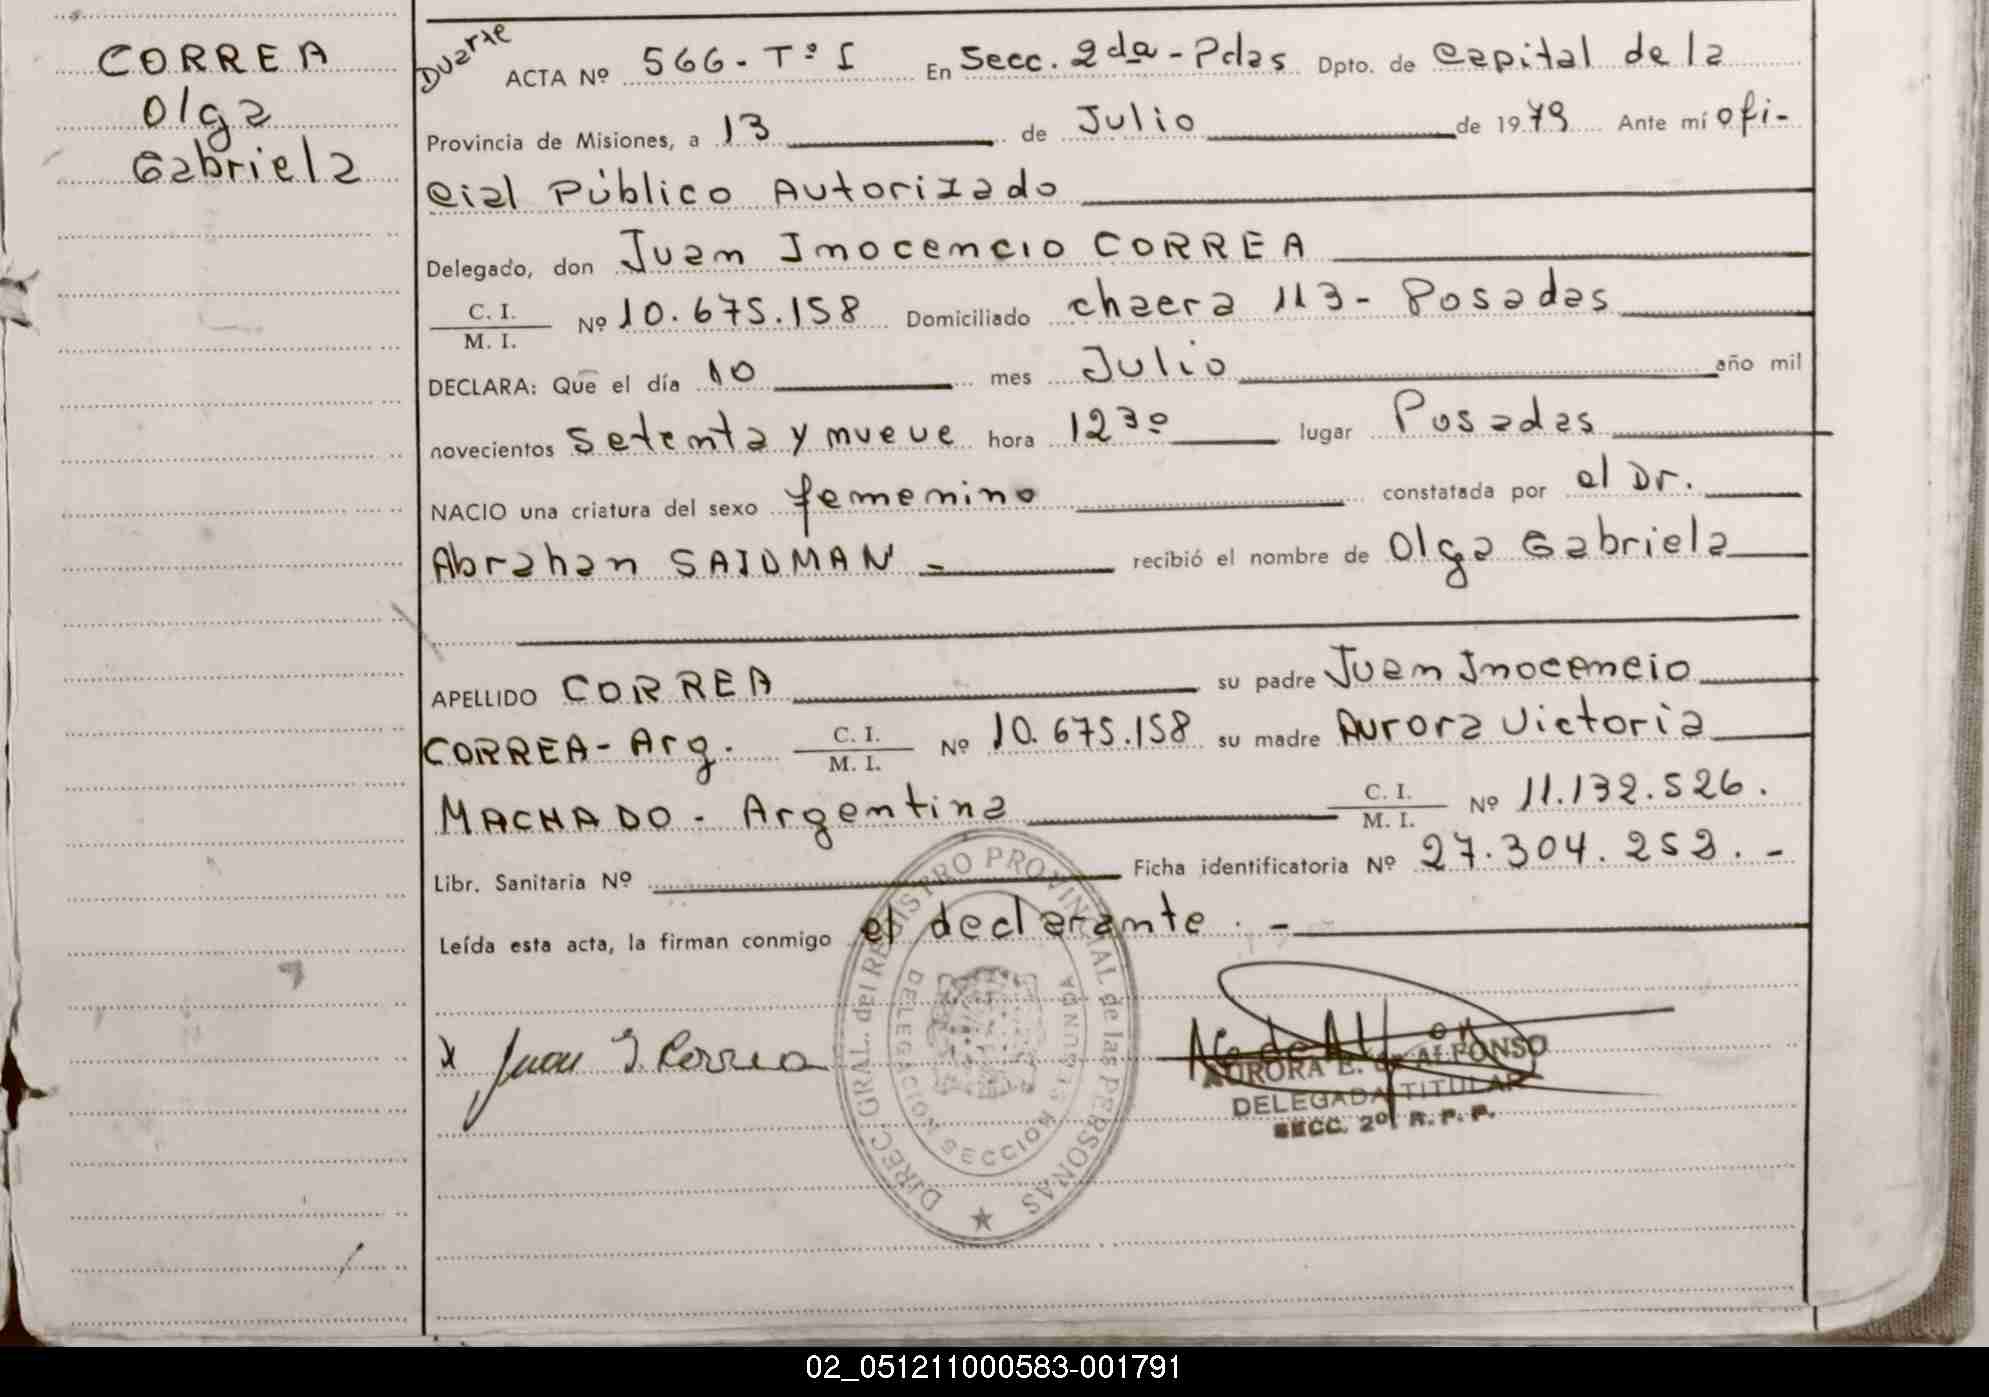 CORREA
Olga
Gabriela
Duarte
ACTA Nº 566 - Tº I En Secc. 2da - Pdas Dpto. de Capital de la
Provincia de Misiones, a 13 de Julio de 1979 Ante mí ofi-
cial Público Autorizado
Delegado, don Juan Inocencio CORREA
C. I.
M. I.
Nº 10.675.158 Domiciliado chacra 113 - Posadas
DECLARA: Que el día 10 mes Julio año mil
novecientos setenta y nueve hora 12 30 lugar Posadas
NACIO una criatura del sexo femenino constatada por el Dr.
Abrahan SAIDMAN - recibió el nombre de Olga Gabriela
APELLIDO CORREA su padre Juan Inocencio
CORREA - Arg. C. I. M. I. Nº 10.675.158 su madre Aurora Victoria
MACHADO - Argentina C. I. M. I. Nº 11.132.526.
Libr. Sanitaria Nº Ficha identificatoria Nº 27.304.252. -
Leída esta acta, la firman conmigo el declarante. -
x Juan I. Correa
DIREC. GRAL. del REGISTRO PROVINCIAL de las PERSONAS
DELEGACION SECCION SEGUNDA
AURORA E. de ALFONSO
DELEGADA TITULAR
SECC. 2º R. P. P.
02_051211000583-001791